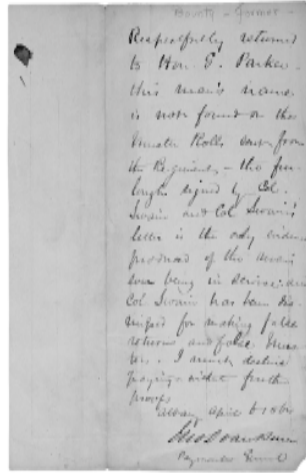 Bounty - Former -
Respectfully returned
to Hon. E. Parker.
this man's name
is not found on the
Muster Rolls sent from
the Regiment - the fur-
lough signed by Col.
Swain and Col Swain's
letter is the only eviden
produced of the
being in service. and
Col Swain has been dis
missed for making false
returns and false Mus
ters. I must decline
paying without further
proof
Albany April 6 1864
Paymaster General